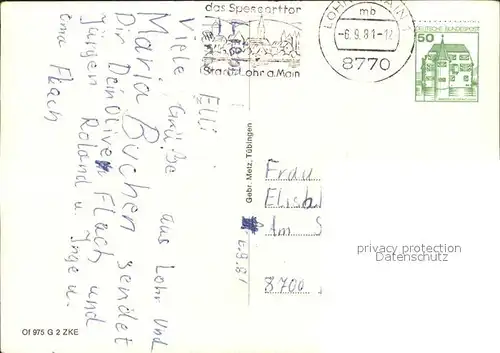 das Spessarttor
Stadt Lohr a. Main
LOHR MAIN
mb
-6.9.81-12
8770
50
DEUTSCHE BUNDESPOST
Elli
Viele Grüße aus Lohr und
Maria Buchen sendet
Dir Dein Oliver Flach und
Jürgen Roland u. Inge u.
oma Flach
6.9.81
Gebr. Metz, Tübingen
Frau
Elisab
Am S
8700
privacy protection
Datenschutz
Of 975 G 2 ZKE